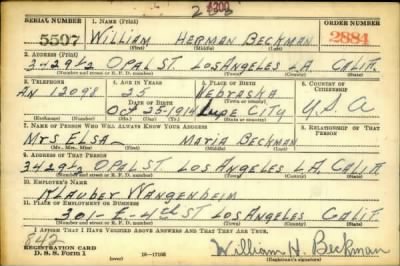 2 $200
SERIAL NUMBER 1. NAME (Print) ORDER NUMBER
5507 WILLIAM HERMAN BECKMAN 2884
(First) (Middle) (Last)
2. ADDRESS (Print)
3429½ OPAL ST. LOS ANGELES L.A. CALIF.
(Number and street or R. F. D. number) (Town) (County) (State)
3. TELEPHONE 4. AGE IN YEARS 5. PLACE OF BIRTH 6. COUNTRY OF CITIZENSHIP
AN 12098 25 NEBRASKA
DATE OF BIRTH (Town or county)
OCT 25, 1914 CITY U.S.A
(Mo.) (Day) (Yr.) (State or country)
7. NAME OF PERSON WHO WILL ALWAYS KNOW YOUR ADDRESS 8. RELATIONSHIP OF THAT PERSON
MRS ELISA MARIA BECKMAN
(Mr., Mrs., Miss) (First) (Middle) (Last)
9. ADDRESS OF THAT PERSON
3429½ OPAL ST LOS ANGELES L.A. CALIF
(Number and street or R. F. D. number) (Town) (County) (State)
10. EMPLOYER'S NAME
KLAUBER WANGENHEIM
11. PLACE OF EMPLOYMENT OR BUSINESS
301-E-4th ST LOS ANGELES CALIF.
(Number and street or R. F. D. number) (Town) (County) (State)
I AFFIRM THAT I HAVE VERIFIED ABOVE ANSWERS AND THAT THEY ARE TRUE.
542
REGISTRATION CARD
D. S. S. Form 1 (over) 16-17105
William H. Beckman
(Registrant's signature)